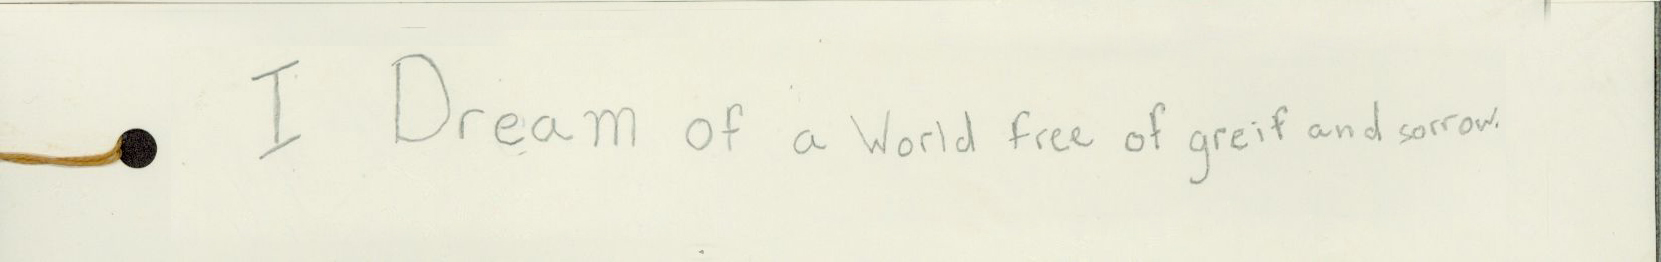 I Dream of a World free of greif and sorrow.